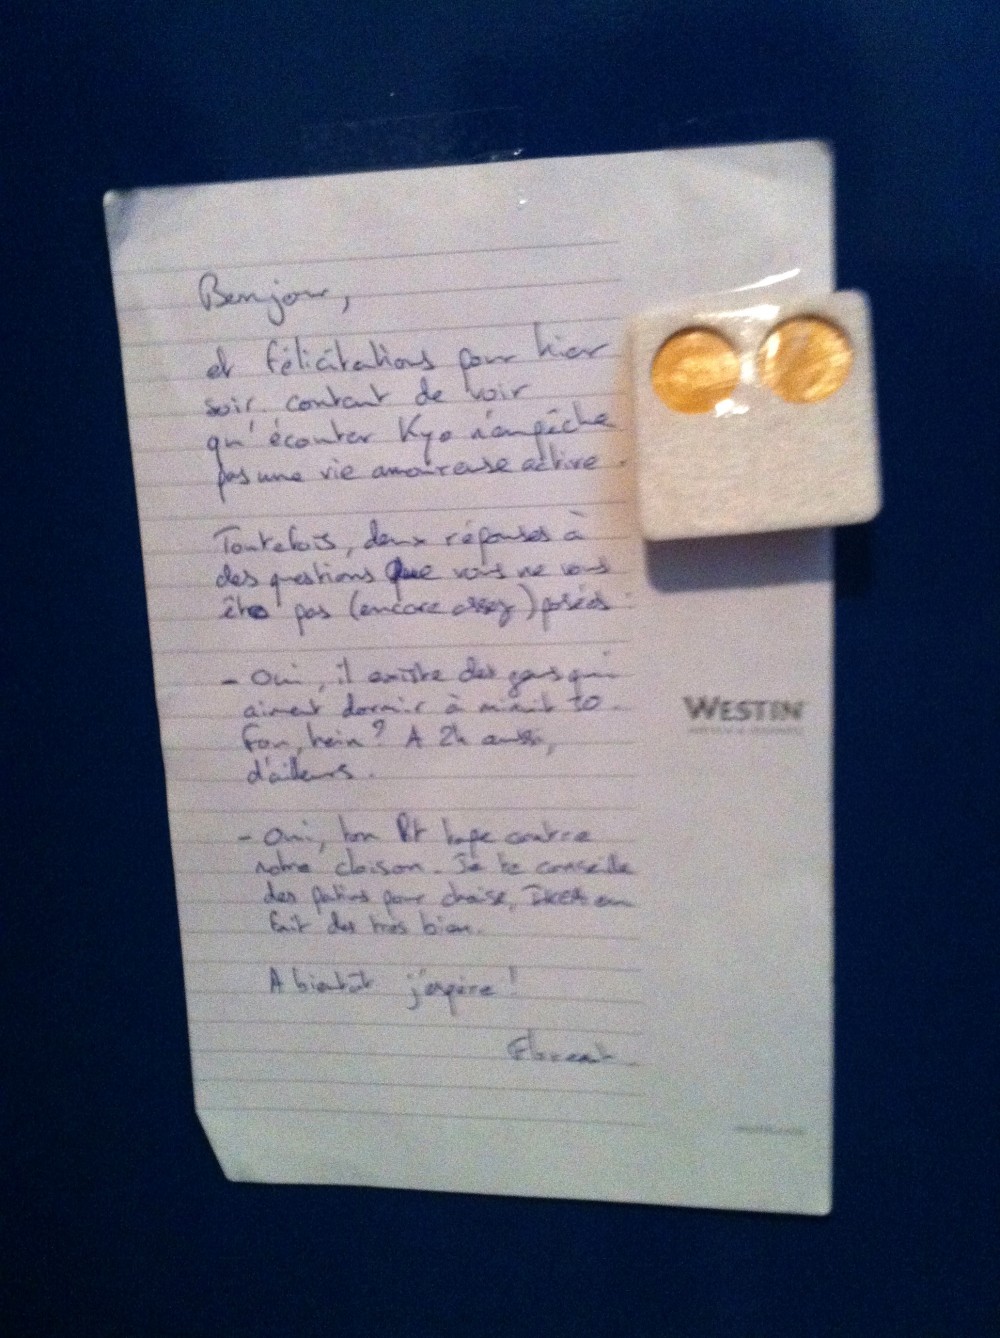 Bonjour,
et félicitations pour hier
soir. content de voir
qu'écouter Kyo n'empêche
pas une vie amoureuse active.
Toutefois, deux réponses à
des questions que vous ne vous
êtes pas (encore assez) posées :
- Oui, il existe des gens qui
aiment dormir à minuit 10.
Fou, hein? A 2h aussi,
d'ailleurs.
- Oui, ton lit tape contre
notre cloison. Je te conseille
des patins pour chaise, IKEA en
fait des très bien.
A bientôt j'espère !
Florent
WESTIN